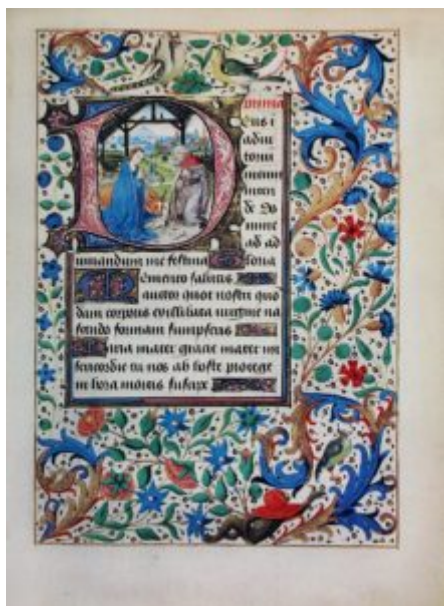 prima
D eus i
adiu
toriu
meum
inten
de Do
mine
ad ad
iuuandum me festina Gloria
Memento salutis
auctor quod nostri quon
dam corporis ex illibata virgine na
scendo formam sumpseris
Maria mater gracie mater mi
sericordie tu nos ab hoste protege
in hora mortis suscipe